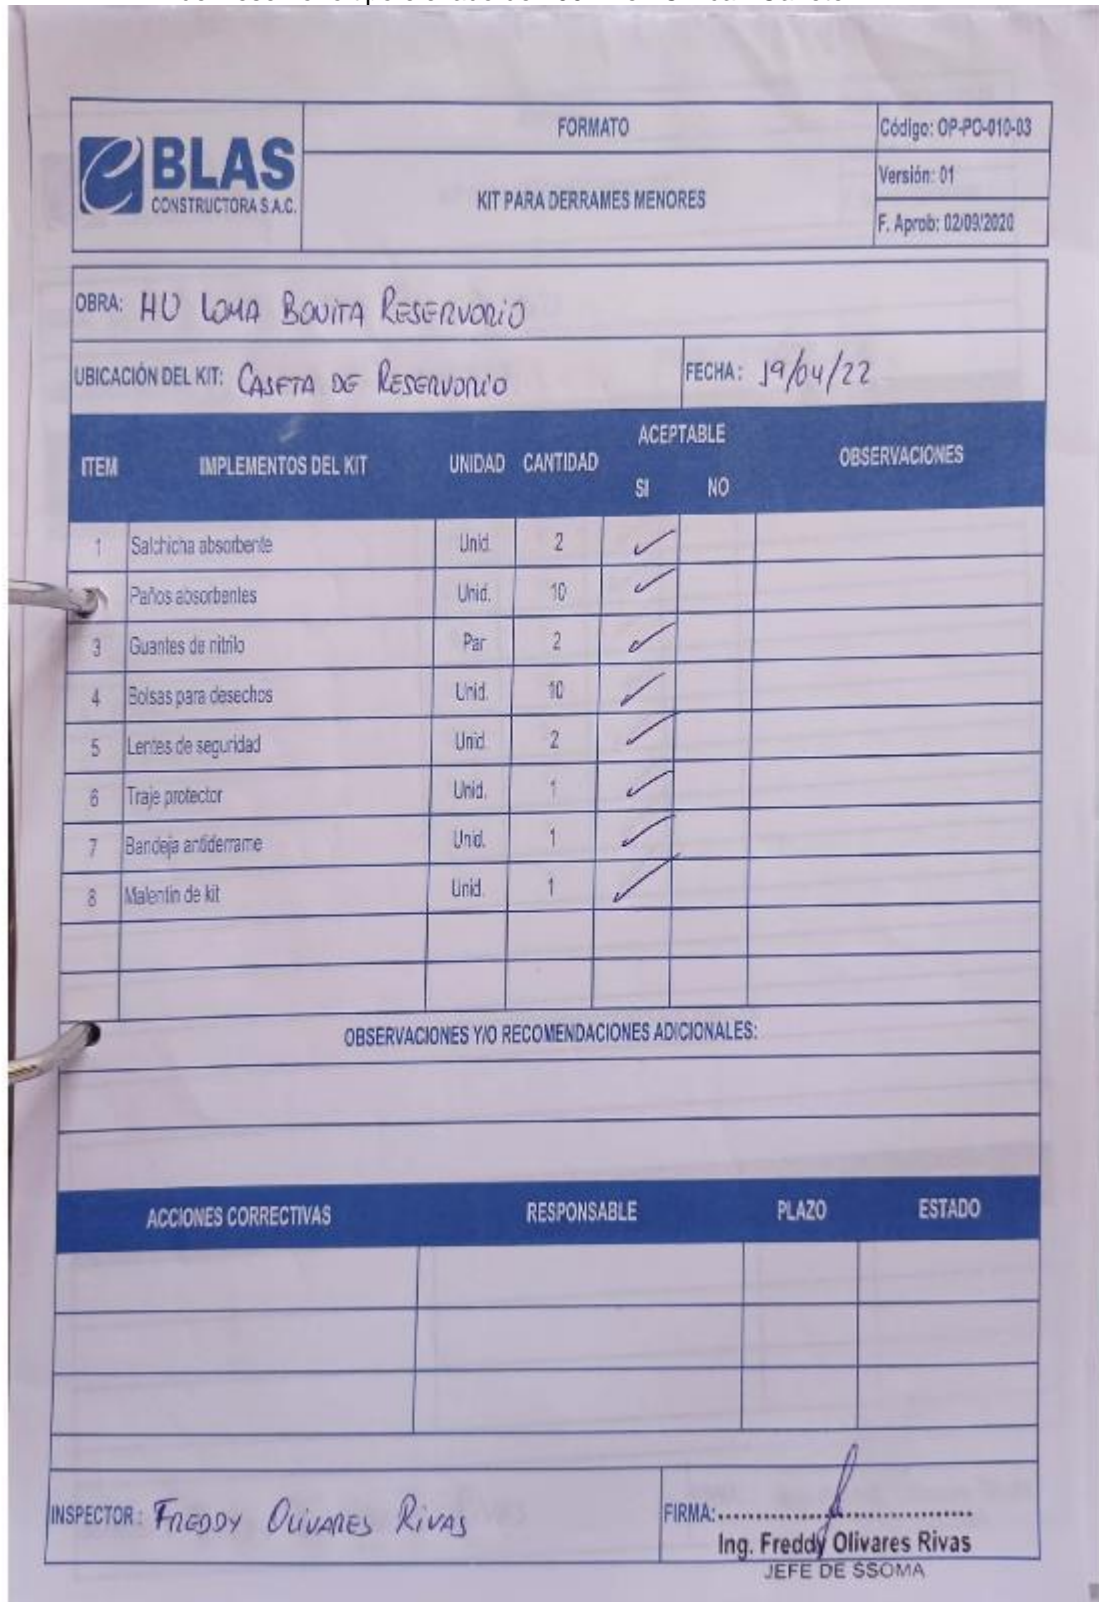 BLAS
CONSTRUCTORA S.A.C.
FORMATO
KIT PARA DERRAMES MENORES
Código: OP-PO-010-03
Versión: 01
F. Aprob: 02/09/2020
OBRA: HU LOMA BONITA RESERVORIO
UBICACIÓN DEL KIT: CASETA DE RESERVORIO FECHA: 19/04/22
ITEM IMPLEMENTOS DEL KIT UNIDAD CANTIDAD ACEPTABLE SI NO OBSERVACIONES
1 Salchicha absorbente Unid. 2 ✓
Paños absorbentes Unid. 10 ✓
3 Guantes de nitrilo Par 2 ✓
4 Bolsas para desechos Unid. 10 ✓
5 Lentes de seguridad Unid. 2 ✓
6 Traje protector Unid. 1 ✓
7 Bandeja antiderrame Unid. 1 ✓
8 Malentin de kit Unid. 1 ✓
OBSERVACIONES Y/O RECOMENDACIONES ADICIONALES:
ACCIONES CORRECTIVAS RESPONSABLE PLAZO ESTADO
INSPECTOR: FREDDY OLIVARES RIVAS FIRMA:
Ing. Freddy Olivares Rivas
JEFE DE SSOMA